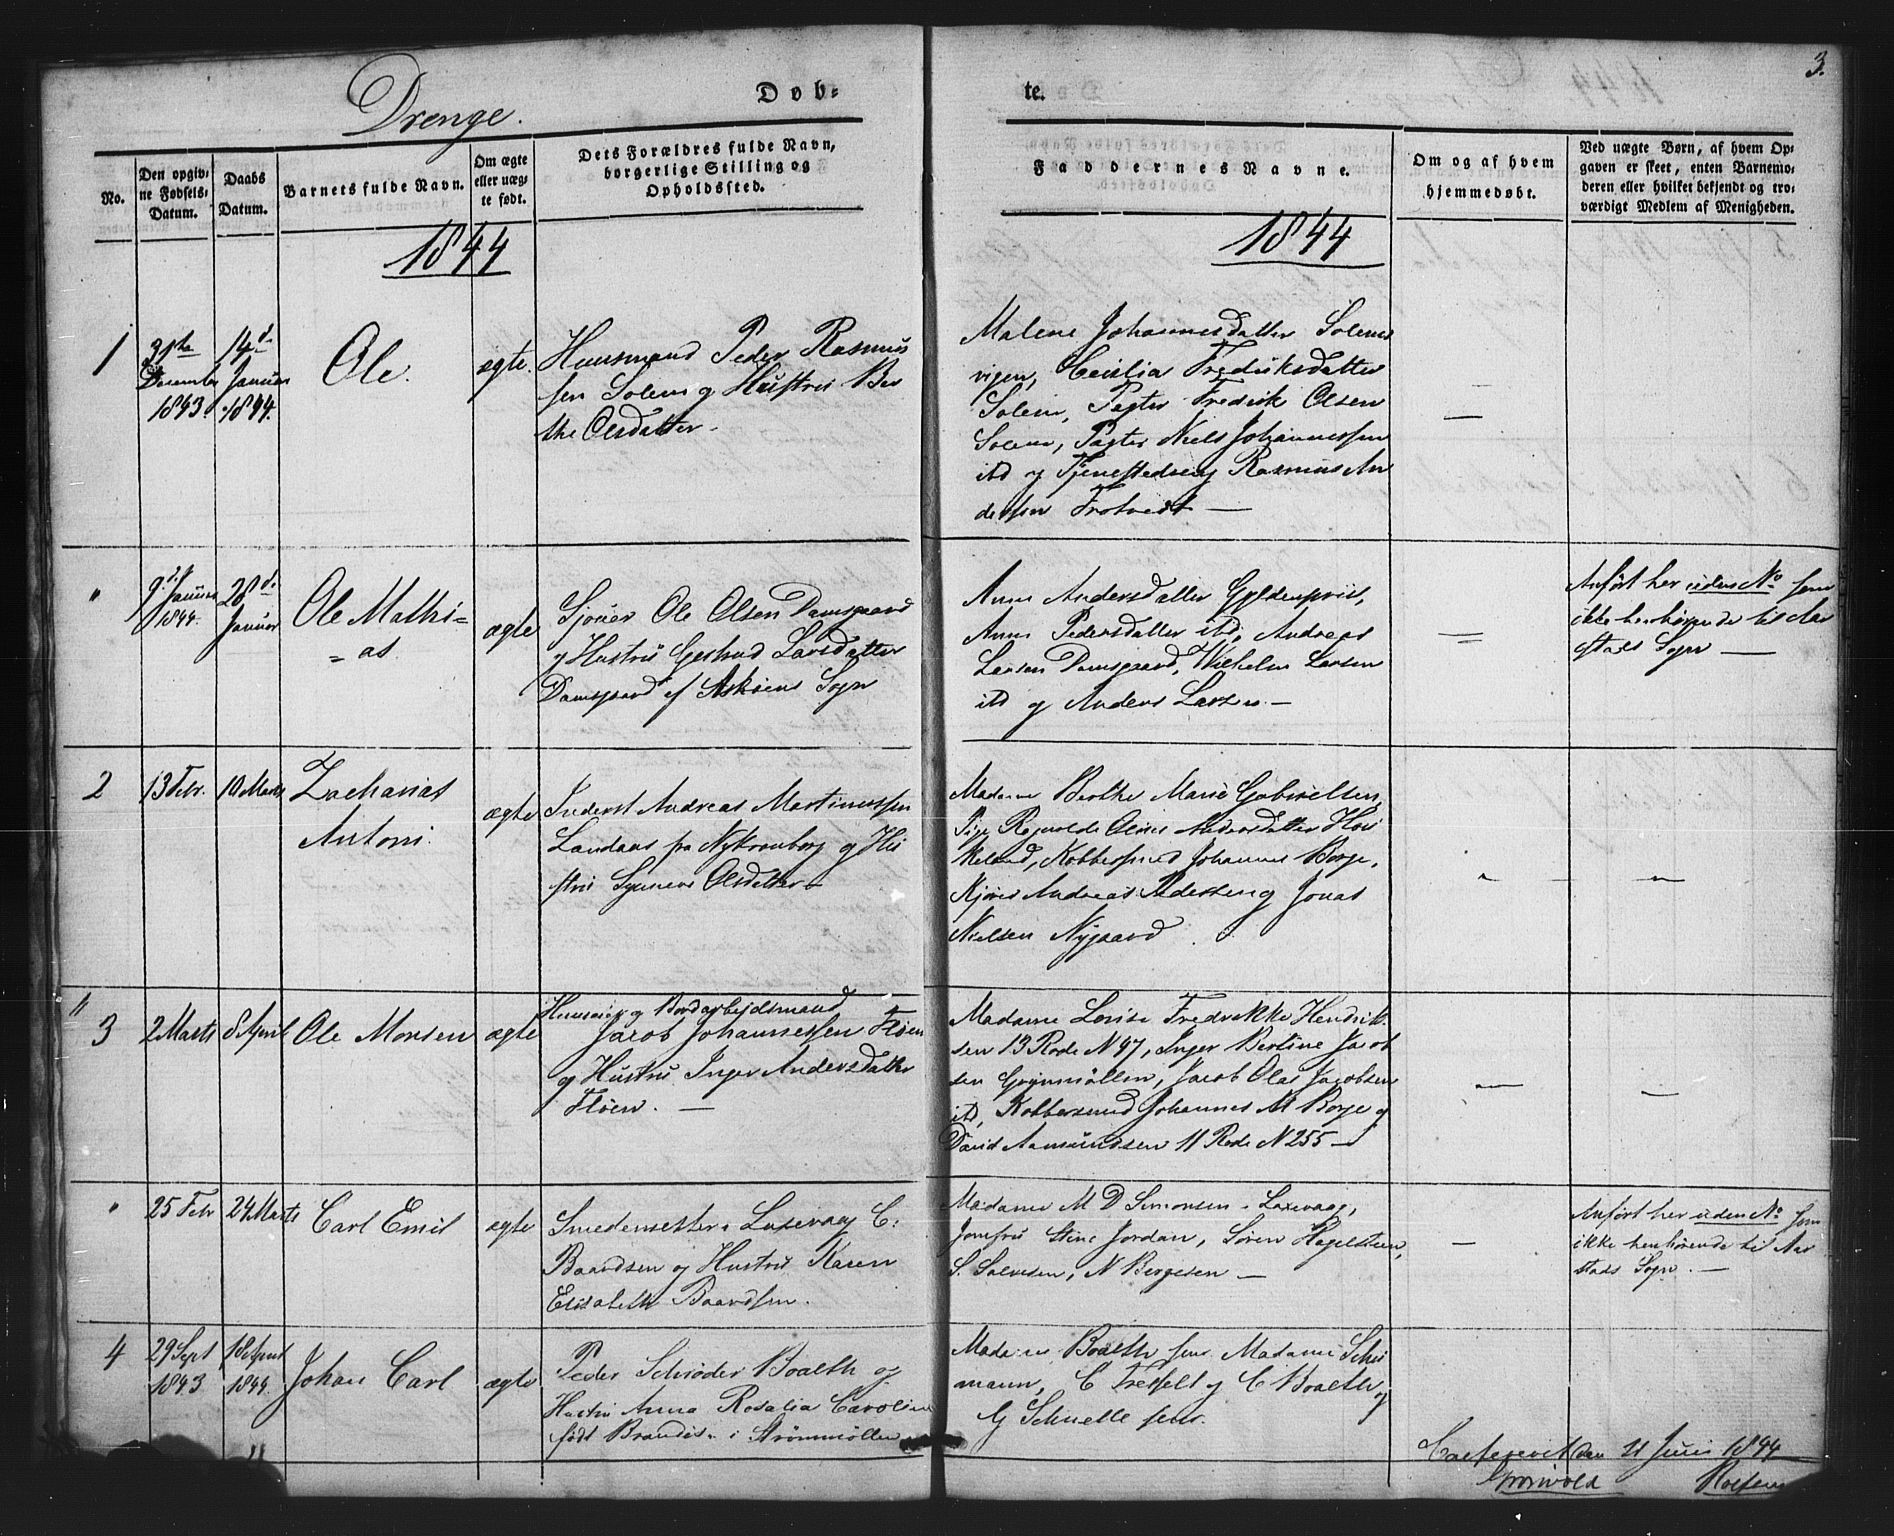 3.
Drenge.
Døb=
te.
No.
Den opgiv-
ne Fødsels-
Datum.
Daabs
Datum.
Barnets fulde Navn.
Om ægte
eller uæg-
te født.
Dets Forældres fulde Navn,
borgerlige Stilling og
Opholdssted.
Faddernes Navne.
Om og af hvem
hjemmedøbt.
Ved uægte Børn, af hvem Op-
gaven er skeet, enten Barnemo-
deren eller hvilket bekjendt og tro-
værdigt Medlem af Menigheden.
1844
1844
1
31te
December
1843.
14d.
Januar
1844.
Ole.
ægte.
Huusmand Peder Rasmus
sen Solem og Hustru Ber
the Olsdatter.
Malene Johannesdatter Solems
vigen, Cecilia Frederiksdatter
Solem, Pagter Frederik Olsen
Solem, Pagter Niels Johannessen
itd og Tjenestedreng Rasmus An
derssen Frotvedt —
—
"
9d.
Januar
1844.
28d.
Januar
Ole Mathi=
=as.
ægte
Sjouer Ole Olsen Damsgaard
og Hustru Gertrud Larsdatter
Damsgaard af Askøens Sogn
Anne Andersdatter Gyldenpriis,
Anne Pedersdatter itd, Andreas
Larsen Damsgaard, Wilhelm Larsen
itd og Anders Larsen —
Anført her uden No som
ikke henhørende til Aar
stads Sogn —
2
13 Febr.
10 Marts
Zacharias
Antoni.
ægte
Inderst Andreas Martinussen
Landaas fra Nykronborg og Hu
stru Synneve Olsdatter —
Madame Berthe Marie Gabrielsen,
Pige Ragnolde Oline Andersdatter Hau
keland, Kobbersmed Johannes Borge,
Andreas Pedersen og Jonas
Nielsen Nygaard.
"
3
2 Marts
8 April
Ole Monsen
ægte
Huuseier og Bordarbejdsmand
Jacob Johannessen Fløen
og Hustru Inger Andersdatter
Fløen. —
Madame Lovise Fredrikke Hendrik
sen 13 Rode N 47, Inger Bertine Jacob
sen Grønmøllen, Jacob Olai Jacobsen
itd, Kobbersmed Johannes M Borge og
David Aamundsen 11 Rode N 255 —
"
25 Febr
24 Marts
Carl Emil
ægte
Smedemester i Laxevaag C.
Baardsen og Hustru Karen
Elisabeth Baardsen.
Madame M D Simonsen i Laxevaag,
Jomfru Stine Jordan, Søren Hagelsteen,
S. Salvesen, N Bergesen —
—
Anført her uden No som
ikke henhørende til Aar
stads Sogn. —
4
29 Sept
1843
18 April
1844.
Johan Carl
ægte
Peder Schrøder Boalth og
Hustru Anna Rosalia Caroline
født Brandis i Strømmøllen
Madame Boalth sen. Madame Schu
mann, C Tresselt og C Boalth og
G Schnelle senr.
den 21 Juni 1844
Grønvold